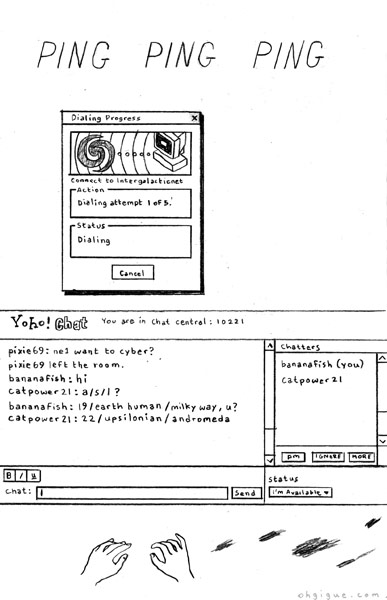 PING PING PING
Dialing Progress X
Connect to Intergalacticnet
Action
Dialing attempt 1 of 5.
Status
Dialing
Cancel
Yoho! Chat You are in chat central: 10221
pixie69: ne1 want to cyber?
pixie69 left the room.
bananafish: hi
catpower21: a/s/l?
bananafish: 19/earth human/milky way, u?
catpower21: 22/upsilonian/andromeda
Chatters
bananafish (you)
catpower21
pm IGNORE MORE
B I U
chat: Send
status
I'm Available
ohgigue.com